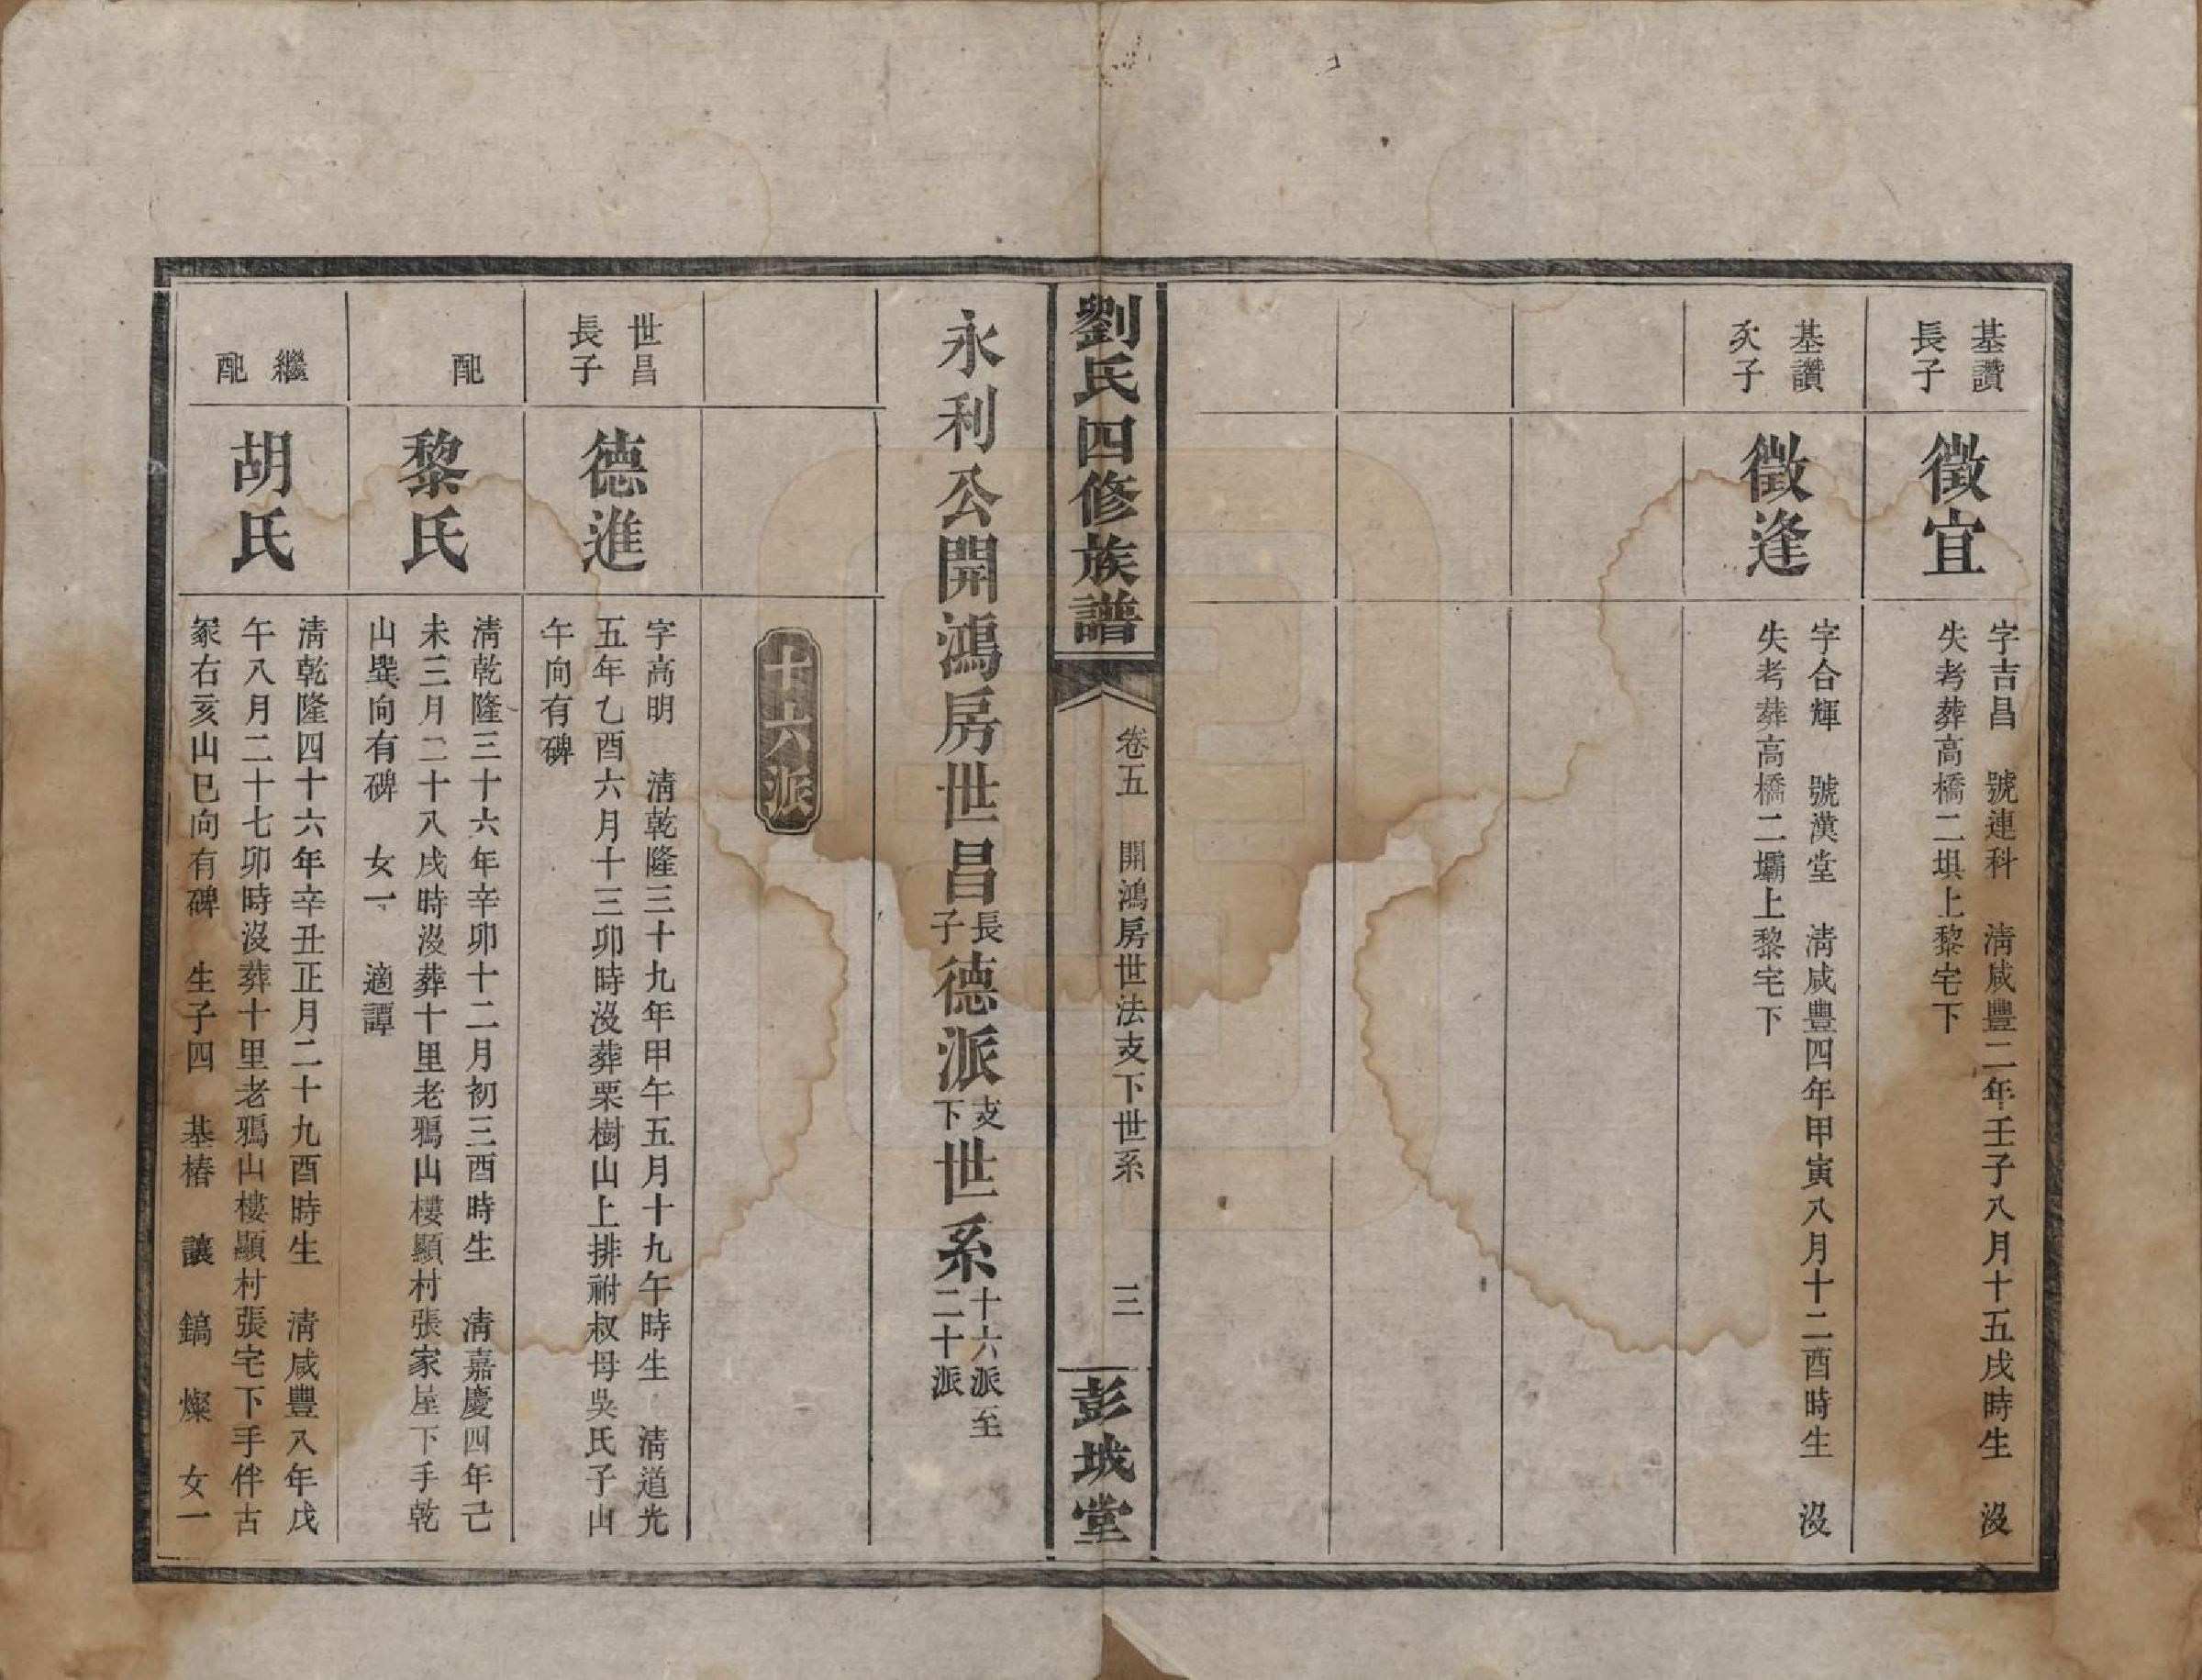 基讚
長子
徵宜
字吉昌　號連科　淸咸豐二年壬子八月十五戌時生　沒
失考葬高橋二埧上黎宅下
基讚
次子
徵逢
字合輝　號漢堂　淸咸豐四年甲寅八月十二酉時生　沒
失考葬高橋二壩上黎宅下
劉氏四修族譜
卷五　開鴻房世法支下世系
三
彭城堂
永利公開鴻房世昌長子德派支下世系十六派至二十派
十六派
世昌
長子
德進
字高明　淸乾隆三十九年甲午五月十九午時生　淸道光
五年乙酉六月十三卯時沒葬栗樹山上排祔叔母吳氏子山
午向有碑
配
黎氏
淸乾隆三十六年辛卯十二月初三酉時生　淸嘉慶四年己
未三月二十八戌時沒葬十里老鴉山樓顯村張家屋下手乾
山巽向有碑　女一　適譚
繼
配
胡氏
淸乾隆四十六年辛丑正月二十九酉時生　淸咸豐八年戊
午八月二十七卯時沒葬十里老鴉山樓顯村張宅下手伴古
冢右亥山巳向有碑　生子四　基椿　讓　鎬　燦　女一